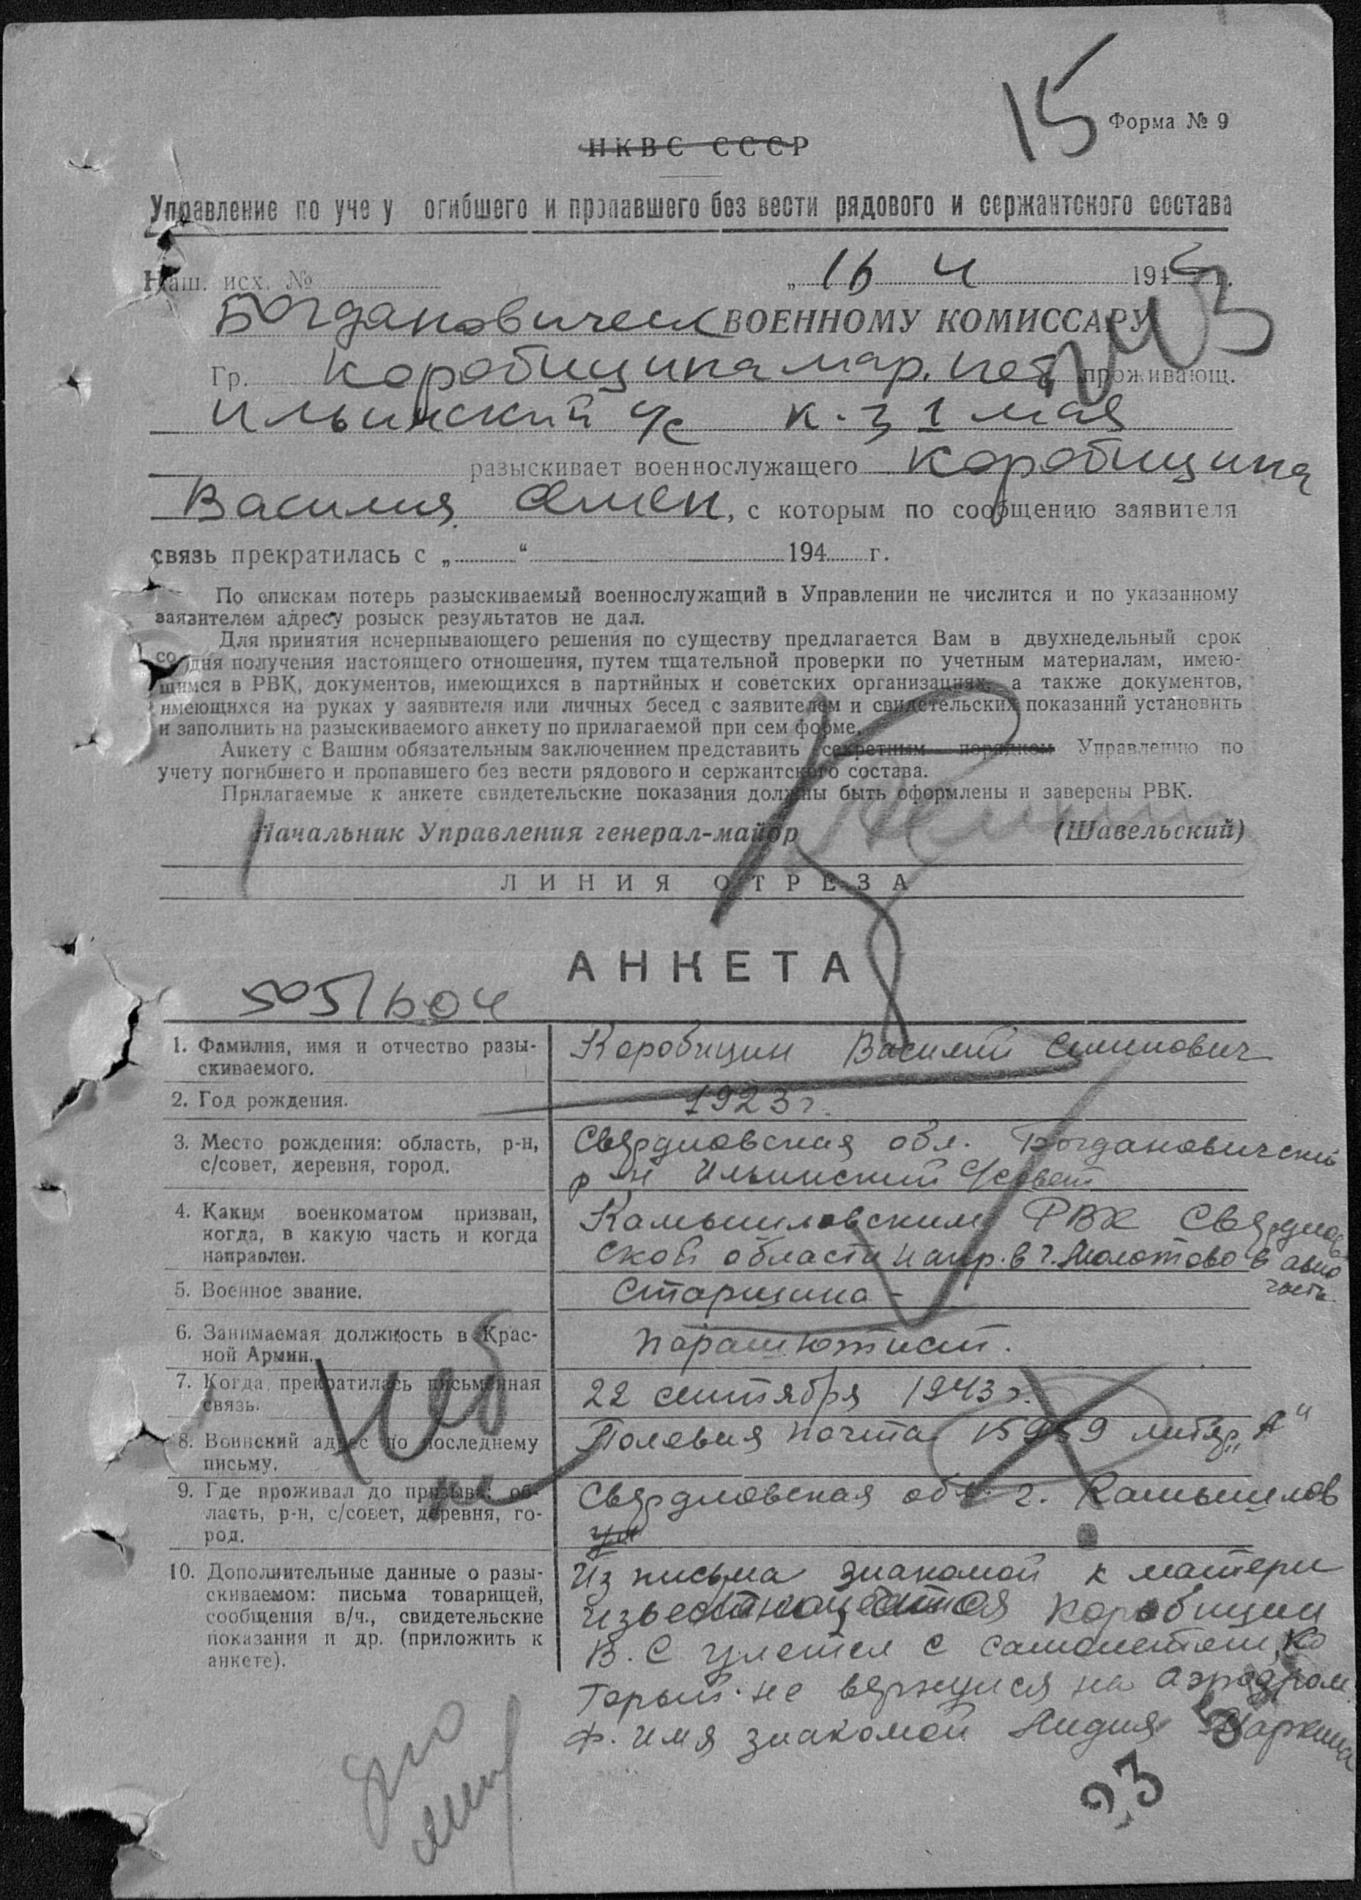 15
Форма № 9
НКВС СССР
Управление по уче у огибшего и пропавшего без вести рядового и сержантского состава
Наш. исх. № „ 16 4 194 г.
Богдановическ ВОЕННОМУ КОМИССАРУ
Гр. Коробицина Мар. Пет. проживающ.
Ильинский с/с к-з 1 мая
разыскивает военнослужащего Коробицина
Василия Семен, с которым по сообщению заявителя
связь прекратилась с „ “ 194 г.
По спискам потерь разыскиваемый военнослужащий в Управлении не числится и по указанному
заявителем адресу розыск результатов не дал.
Для принятия исчерпывающего решения по существу предлагается Вам в двухнедельный срок
со дня получения настоящего отношения, путем тщательной проверки по учетным материалам, имею-
щимся в РВК, документов, имеющихся в партийных и советских организациях, а также документов,
имеющихся на руках у заявителя или личных бесед с заявителем и свидетельских показаний установить
и заполнить на разыскиваемого анкету по прилагаемой при сем форме.
Анкету с Вашим обязательным заключением представить секретным порядком Управлению по
учету погибшего и пропавшего без вести рядового и сержантского состава.
Прилагаемые к анкете свидетельские показания должны быть оформлены и заверены РВК.
Начальник Управления генерал-майор (Шавельский)
ЛИНИЯ ОТРЕЗА
АНКЕТА
1. Фамилия, имя и отчество разы-
скиваемого.
Коробицин Василий Семенович
2. Год рождения.
1923 г.
3. Место рождения: область, р-н,
с/совет, деревня, город.
Свердловская обл. Богдановичский
р-н Ильинский с/совет
4. Каким военкоматом призван,
когда, в какую часть и когда
направлен.
Камышловским РВК Свердлов
ской области напр. в г. Молотово в авио
часть
5. Военное звание.
Старшина -
6. Занимаемая должность в Крас-
ной Армии.
Парашютист.
7. Когда прекратилась письменная
связь.
22 сентября 1943 г.
8. Воинский адрес по последнему
письму.
Полевая почта 15959 литер „А“
9. Где проживал до призыва: об-
ласть, р-н, с/совет, деревня, го-
род.
Свердловская обл. г. Камышлов
10. Дополнительные данные о разы-
скиваемом: письма товарищей,
сообщения в/ч., свидетельские
показания и др. (приложить к
анкете).
Из письма знакомой к матери
Коробицин
В. С улетел с самолетом, ко
торый не вернулся на аэродром.
Ф. имя знакомой Лидия
23